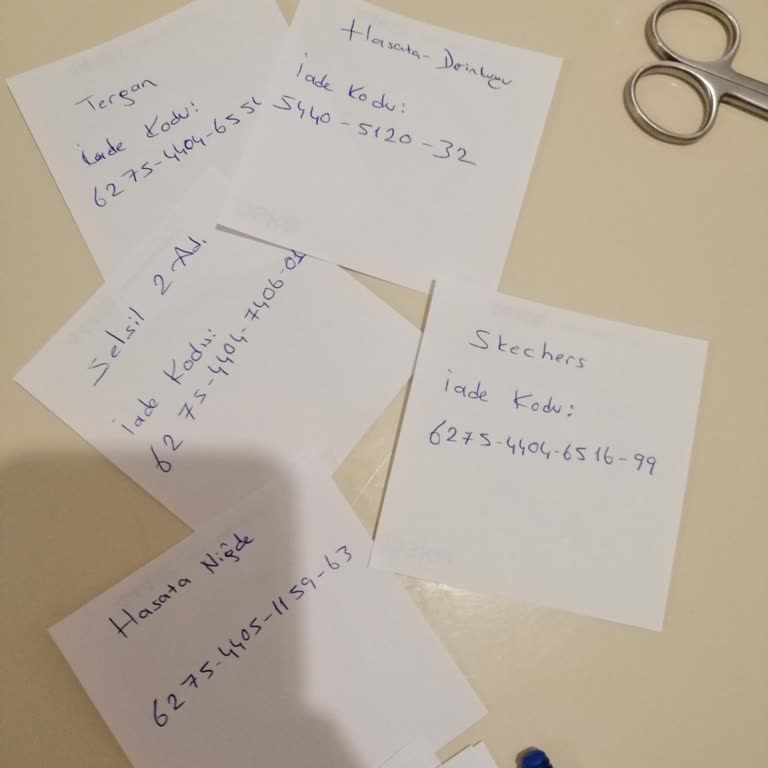 Tergan
iade Kodu:
6275-4404-655
Hasata-Derinkuyu
iade Kodu:
5440-5120-32
Selsil 2 Ad.
iade Kodu:
6275-4404-7406-01
Skechers
iade Kodu:
6275-4404-6516-99
Hasata Niğde
6275-4405-1159-63